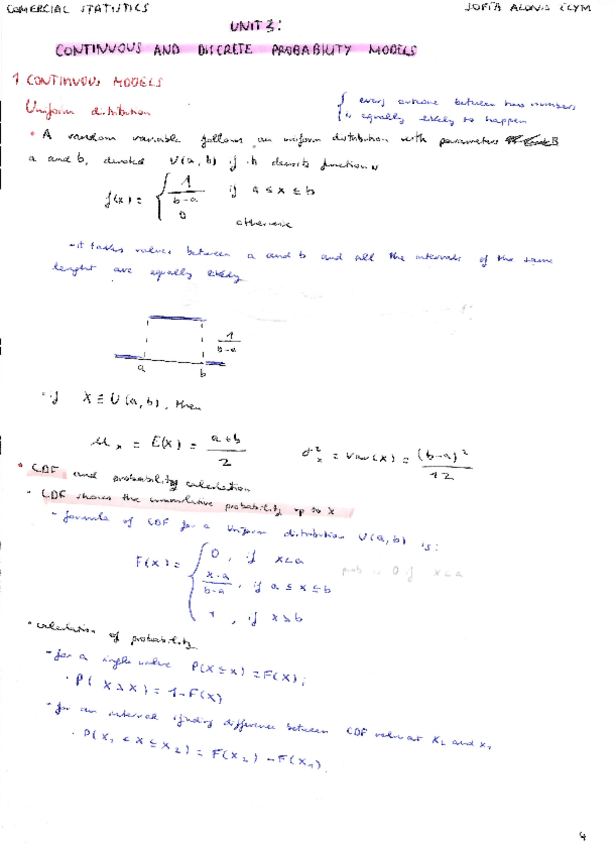 COMERCIAL STATISTICS
UNIT 3:
CONTINUOUS AND DISCRETE PROBABILITY MODELS
1 CONTINUOUS MODELS
Uniform distribution
{ every outcome between two numbers
is equally likely to happen
• A random variable follows an uniform distribution with parameters
a and b, denoted U(a,b) if h density function
f(x) = { 1/(b-a) if a ≤ x ≤ b
0 otherwise
- it takes values between a and b and all the intervals of the same
lenght are equally likely
1/(b-a)
a b
if X ≡ U(a,b), then
μx = E(x) = (a+b)/2 σ²x = Var(x) = (b-a)²/12
• CDF and probability calculation
- CDF shares the cumulative probability up to x
- formula of CDF for a Uniform distribution U(a,b) is:
F(x) = { 0, if x<a
prob is 0 if x<a
(x-a)/(b-a), if a ≤ x ≤ b
1, if x>b
• calculation of probability
- for a single value P(X ≤ x) = F(x);
• P(X > x) = 1-F(x)
- for an interval difference between CDF value at x2 and x1
• P(x1 < X ≤ x2) = F(x2) - F(x1)
4